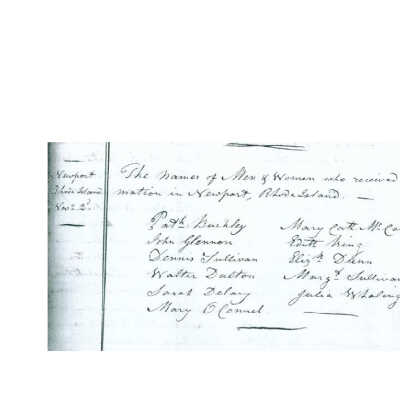 Newport
Rhode Island
Nov. 2d
The names of Men & Women who received
mation in Newport, Rhode Island. —
Patk. Buckley
John Glennon
Dennis Sullivan
Walter Dalton
Sarah Delany
Mary O'Connel
Mary Cath Mc.
Edith King
Elizh. Dunn
Margt. Sullivan
Julia Whaling